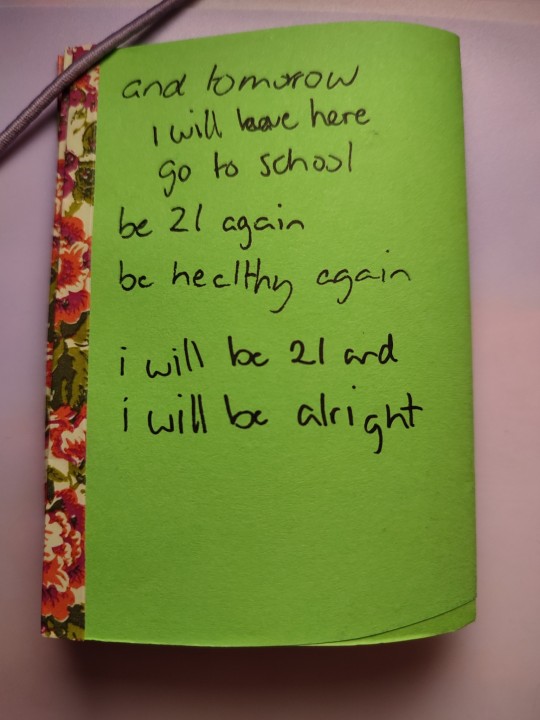 and tomorrow
i will leave here
go to school
be 21 again
be healthy again
i will be 21 and
i will be alright